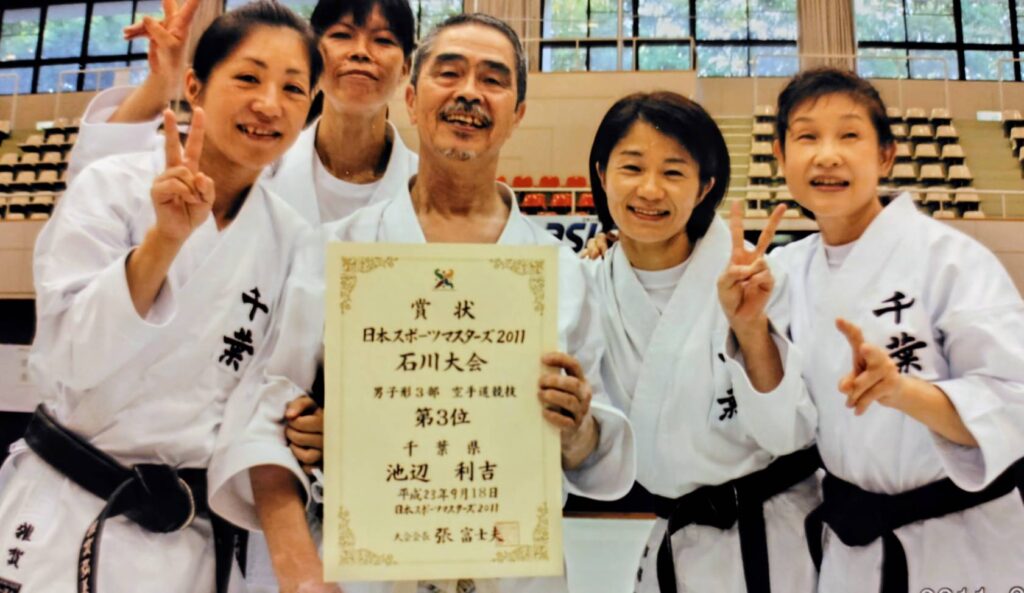 賞状
日本スポーツマスターズ2011
石川大会
男子形3部 空手道競技
第3位
千葉県
池辺 利吉
平成23年9月18日
日本スポーツマスターズ2011
大会会長 張 富士夫
千葉
千葉